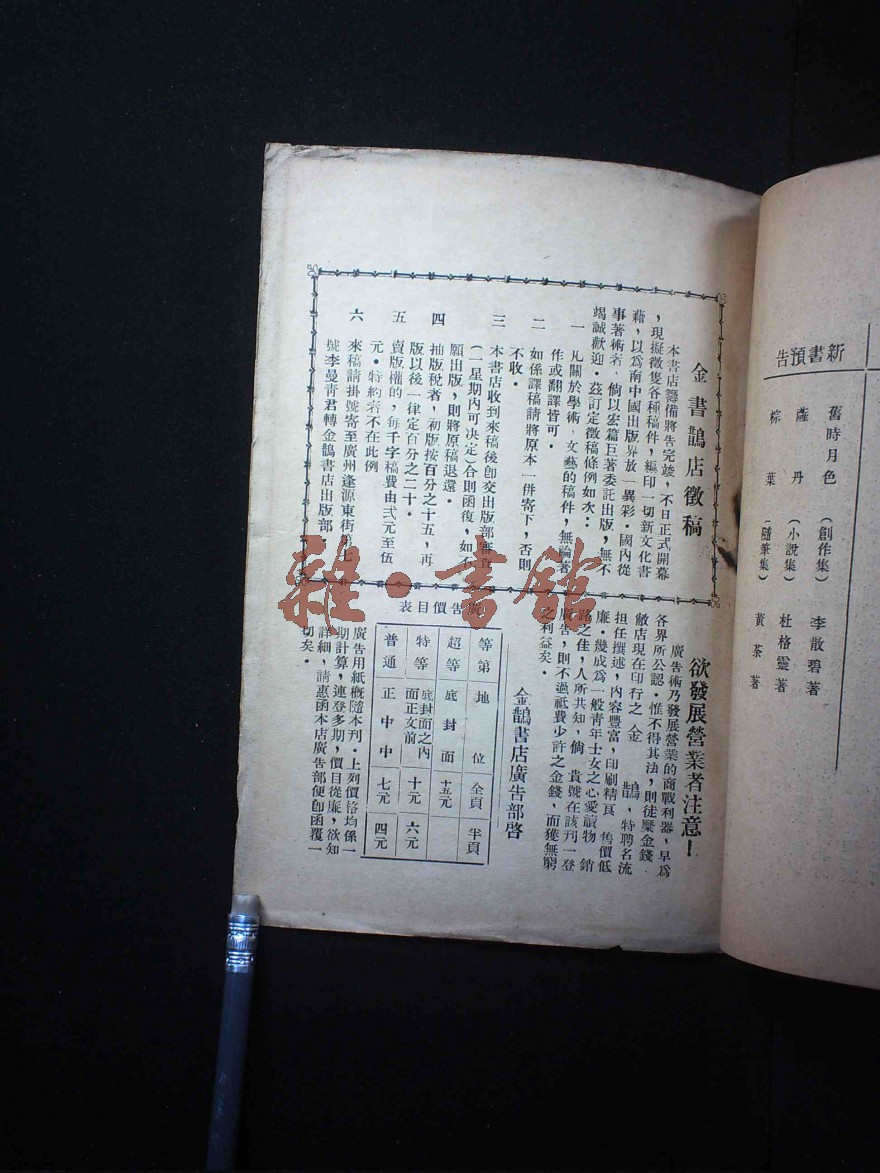 新書預告
舊時月色 (創作集) 李散碧著
薩丹 (小說集) 杜格靈著
棕葉 (隨筆集) 黃茶著
金書鵲店徵稿
本書店籌備將告完竣，不日正式開幕
，現擬徵隻各種稿件，編印一切新文化書
藉，以為南中國出版界放一異彩·國內從
事著術者，倘以宏篇巨著委託出版，無不
竭誠歡迎·茲訂定徵稿條例如次：
一 凡關於學術，文藝的稿件，無論著
作或翻譯皆可·
二 如係譯稿請將原本一併寄下，否則
不收·
三 本書店收到來稿後卽交出版部審查
(一星期內可决定)合則函復，如不
願出版，則將原稿退還·
四 抽版稅者，初版按百分之十五，再
版以後一律定百分之二十·
五 賣版權的，每千字稿費由弍元至伍
元·特約者不在此例
六 來稿請掛號寄至廣州逢源東街第十
號李曼青君轉金鵲書店出版部·
欲發展營業者注意！
廣告術乃發展營業的商戰利器，早為
各界所公認·惟不得其法，則徒糜金錢
敝店現在印行之 金 鵲，特聘名流
担任撰述，內容豐富，印刷精良 售價低
廉·幾成為一般青年士女之心愛讀物 銷
路之佳，人所共知，倘 貴號在該刊一登
廣告，則不過祗費少許之金錢，而獲無窮
之利益矣·
金鵲書店廣告部啓
廣告價目表
等第 地位 全頁 半頁
超等 底封面 十五元
特等 底封面之內面正文前 十元 六元
普通 正中中 七元 四元
廣告用紙槪隨本刊·上列價格均係一
期計算，連登多期，價目從廉，欲知
詳細，請惠函本店廣告部便卽函覆一
切矣·
雜·書館